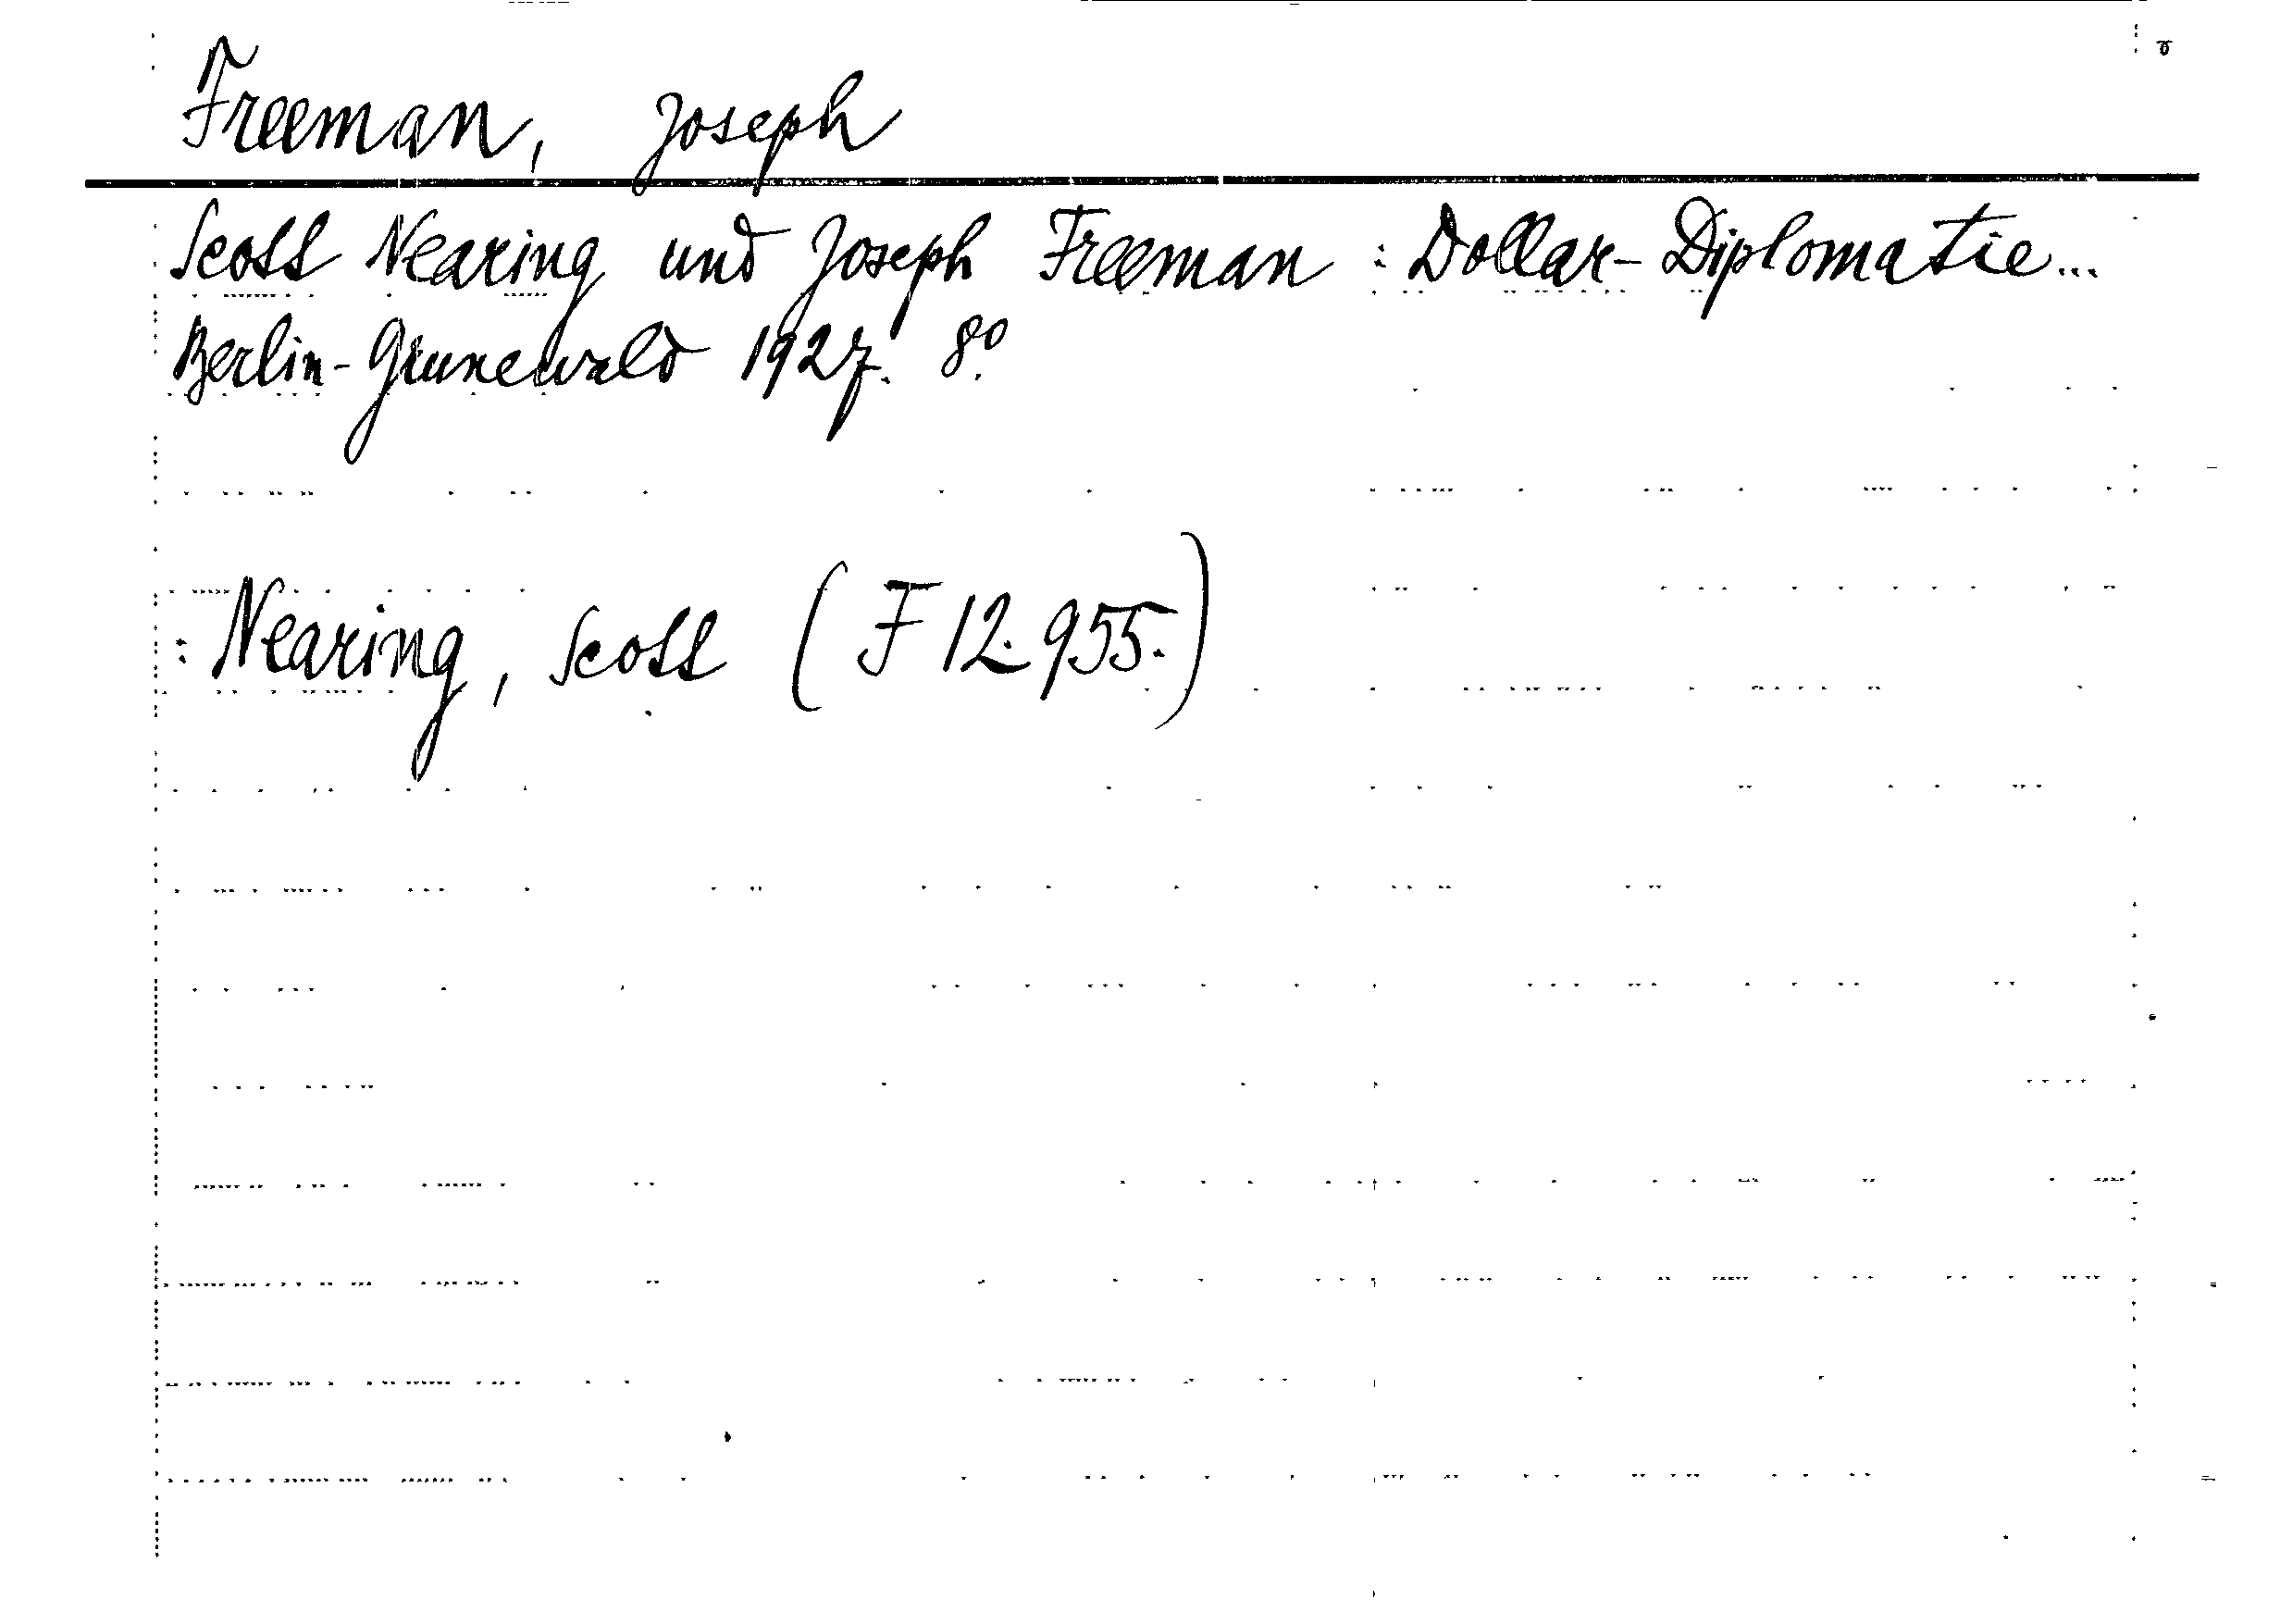 Freeman, Joseph
Scott Nearing und Joseph Freeman : Dollar-Diplomatie...
Berlin-Grunewald 1927. 8º.
: Nearing, Scott (F 12.955.)